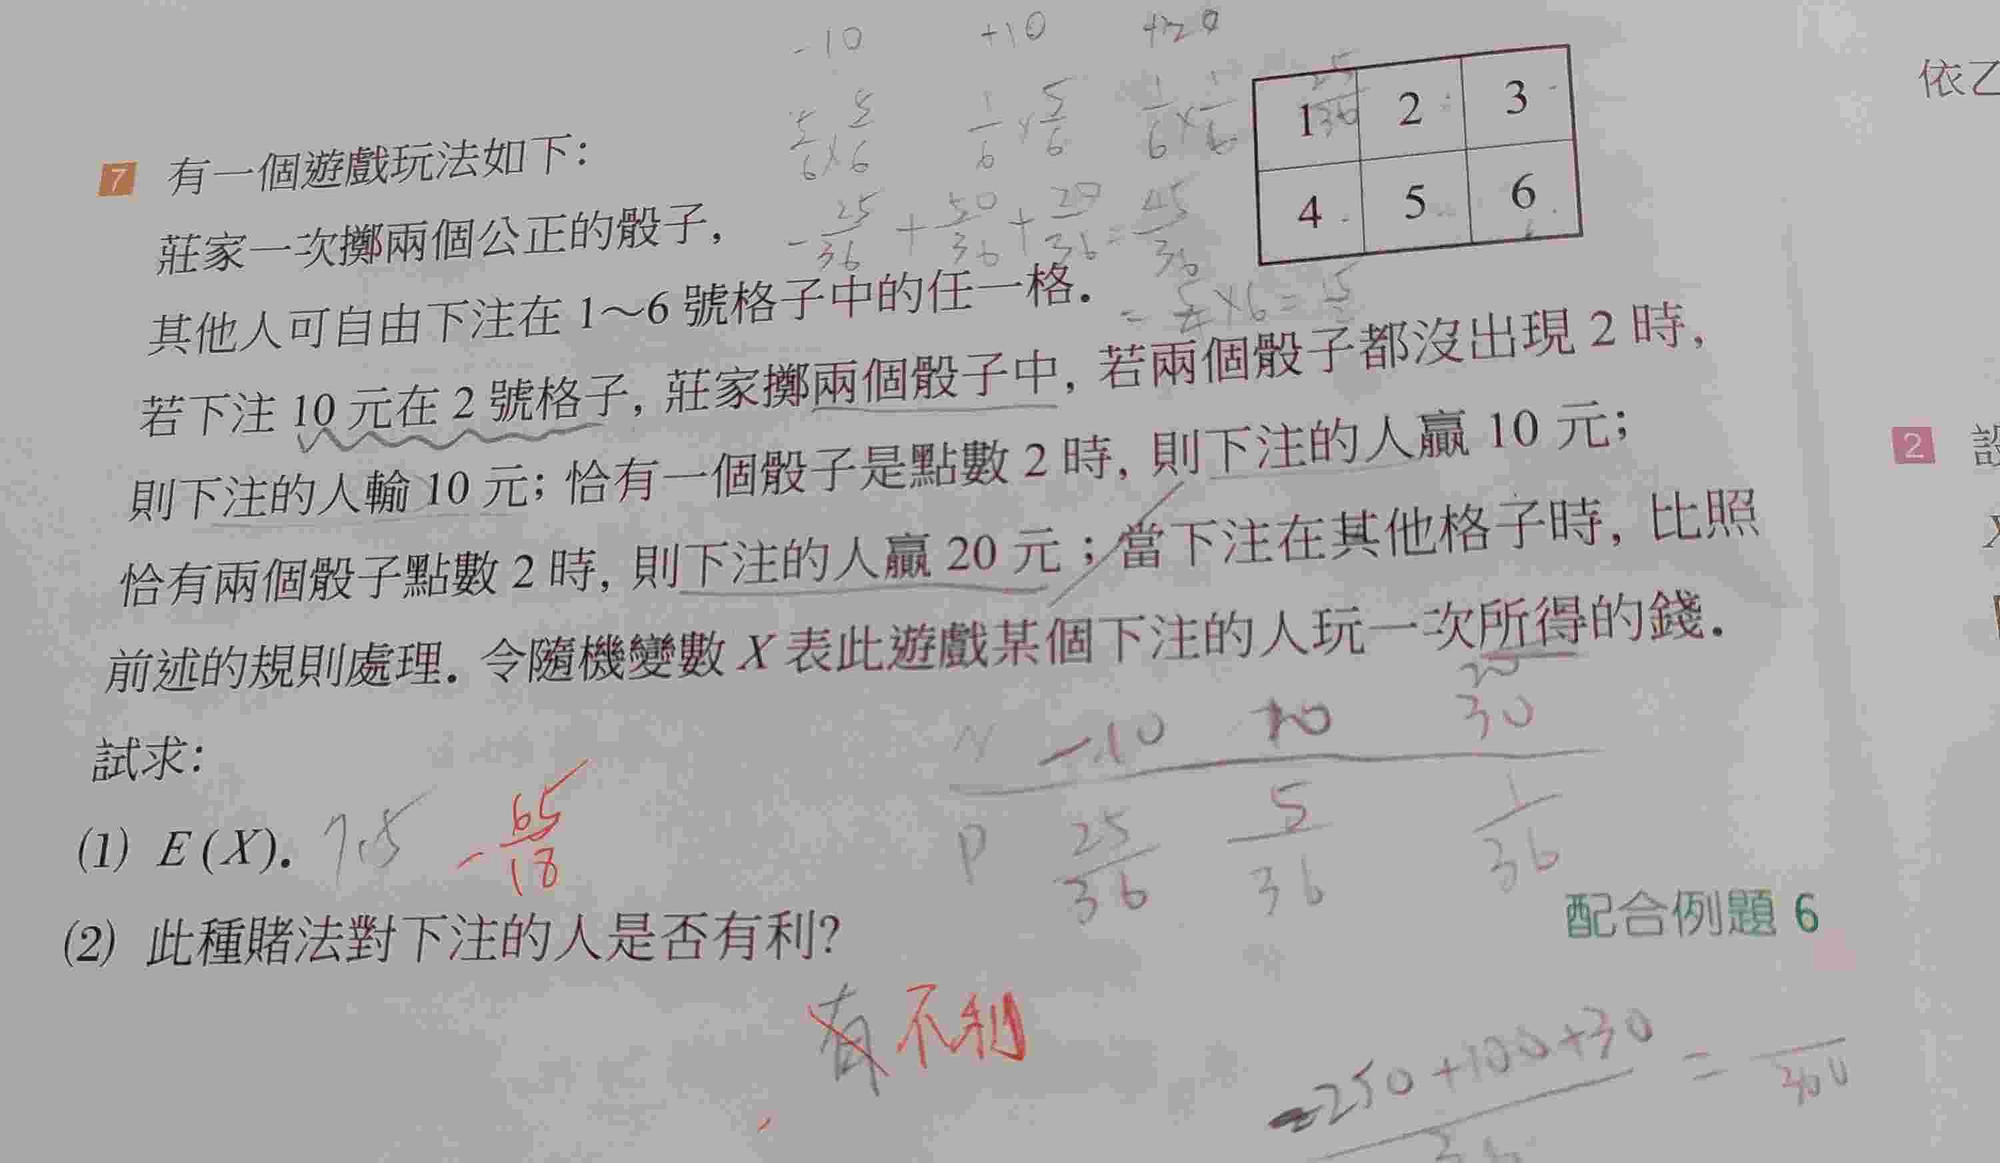 -10 +10 +20
5/6 × 5/6 1/6 × 5/6 1/6 × 1/6 25/36
1 2 3
4 5 6
依乙
7 有一個遊戲玩法如下：
-25/36 + 50/36 + 20/36 = 45/36
莊家一次擲兩個公正的骰子，
其他人可自由下注在 1～6 號格子中的任一格．
若下注 10 元在 2 號格子，莊家擲兩個骰子中，若兩個骰子都沒出現 2 時，
則下注的人輸 10 元；恰有一個骰子是點數 2 時，則下注的人贏 10 元；
恰有兩個骰子點數 2 時，則下注的人贏 20 元；當下注在其他格子時，比照
前述的規則處理．令隨機變數 X 表此遊戲某個下注的人玩一次所得的錢．
2
試求：
-10 10 20
30
P 25/36 5/36 1/36
(1) E(X)． 7.5 -65/18
配合例題 6
(2) 此種賭法對下注的人是否有利？
有 不利
-250+100+30 =